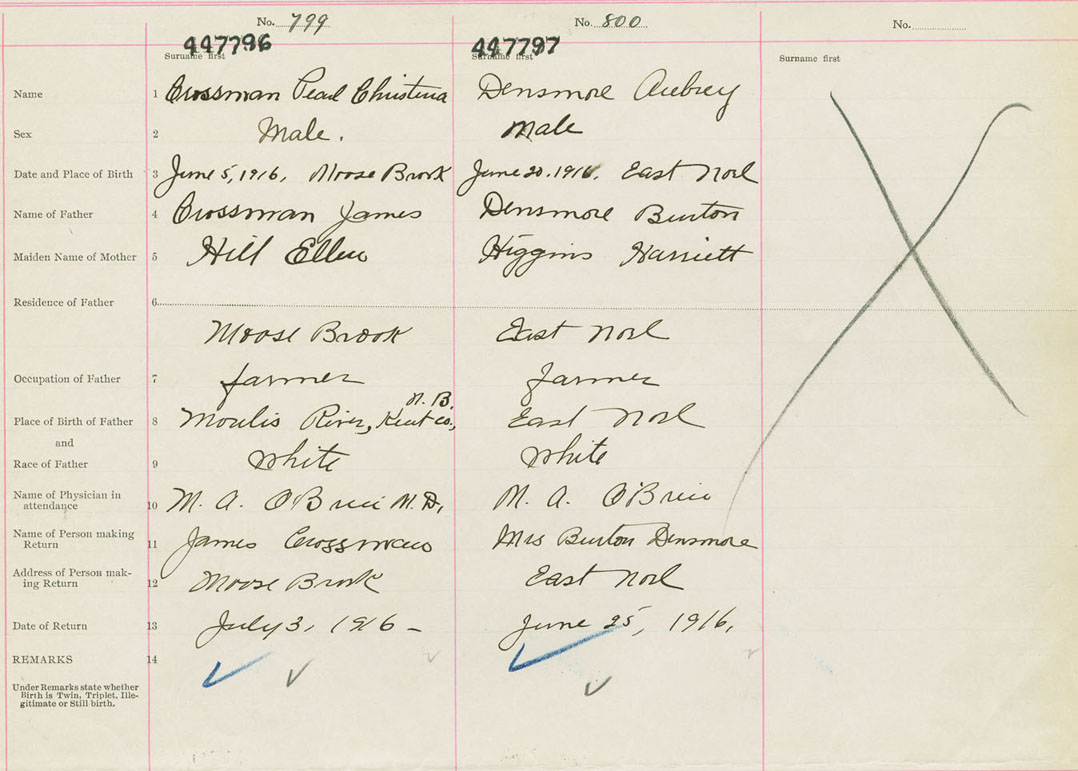 No. 799 No. 800 No.
447796 447797
Surname first Surname first Surname first
Name 1 Crossman Pearl Christena Densmore Aubrey
Sex 2 Male. Male
Date and Place of Birth 3 June 5, 1916, Moose Brook June 20. 1916. East Noel
Name of Father 4 Crossman James Densmore Burton
Maiden Name of Mother 5 Hill Ellen Higgins Harriett
Residence of Father 6
Moose Brook East Noel
Occupation of Father 7 farmer farmer
N. B.
Place of Birth of Father 8 River, Kent co., East Noel
and
Race of Father 9 White White
Name of Physician in
attendance 10 M. A. O'Brien M.D. M. A. O'Brien
Name of Person making
Return 11 James Crossman Mrs Burton Densmore
Address of Person mak-
ing Return 12 Moose Brook East Noel
Date of Return 13 July 3, 1916 – June 25, 1916.
REMARKS 14
Under Remarks state whether
Birth is Twin, Triplet, Ille-
gitimate or Still birth.